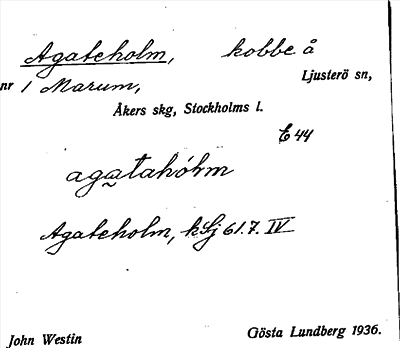 Agateholm, kobbe å
Ljusterö sn,
nr 1 Marum,
Åkers skg, Stockholms l.
E 44
agatahólm
Agateholm, kSj 61.7. IV
John Westin
Gösta Lundberg 1936.